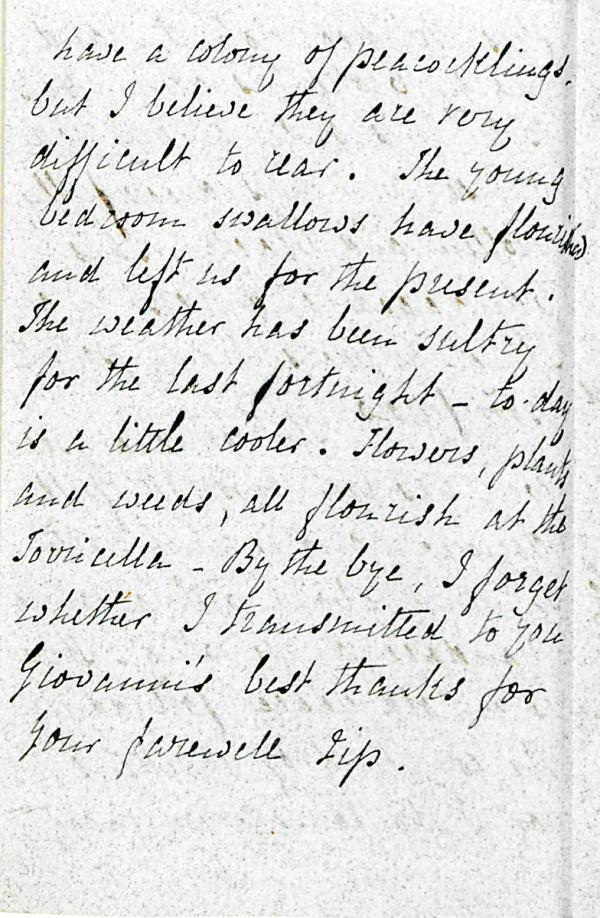 have a colony of peacocklings.
but I believe they are very
difficult to rear. The young
bedroom swallows have flourished
and left us for the present.
The weather has been sultry
for the last fortnight - to-day
is a little cooler. Flowers, plants
and weeds, all flourish at the
Torricella - By the bye, I forget
whether I transmitted to you
Giovanni's best thanks for
your farewell tip.